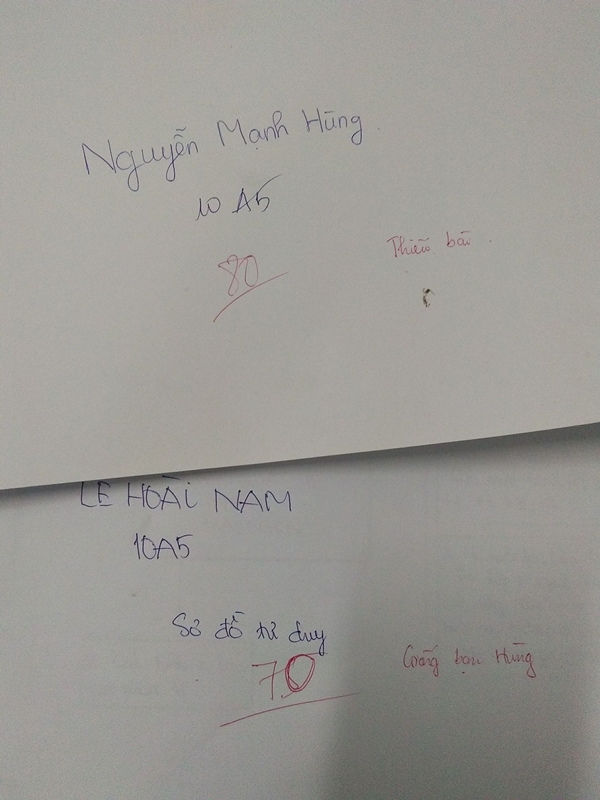 Nguyễn Mạnh Hùng
10 A5
80
Thiếu bài.
LÊ HOÀI NAM
10A5
Sơ đồ tư duy
7.0
bạn Hùng